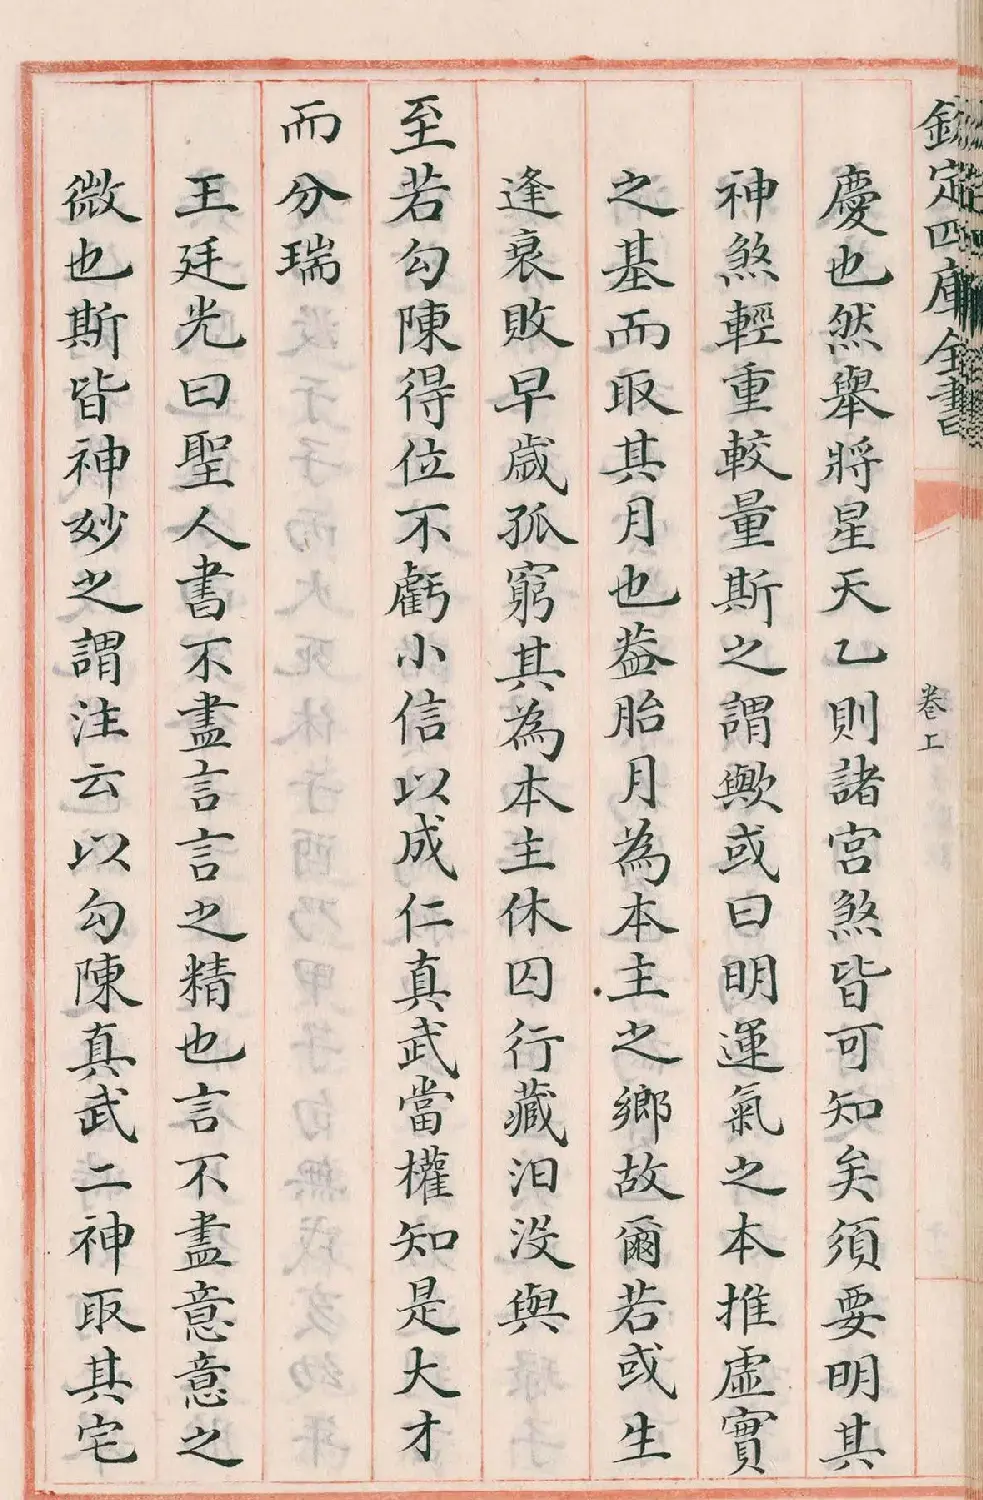 欽定四庫全書
卷上
慶也然舉將星天乙則諸宮煞皆可知矣須要明其
神煞輕重較量斯之謂歟或曰明運氣之本推虛實
之基而取其月也葢胎月為本主之鄉故爾若或生
逢衰敗早歲孤窮其為本主休囚行藏汩沒與
至若勾陳得位不虧小信以成仁真武當權知是大才
而分瑞
王廷光曰聖人書不盡言言之精也言不盡意意之
微也斯皆神妙之謂注云以勾陳真武二神取其宅